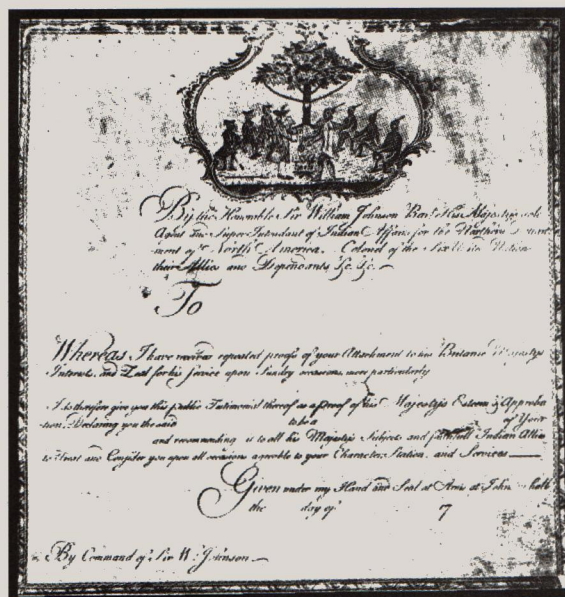 By the Honorable Sir William Johnson Bar.t His Majesty's sole
Agent and Super Intendant of Indian Affairs for the Northern
ment of North America. Colonel of the Six United Nations
their Allies and Dependants &c. &c.
To
Whereas I have received repeated proofs of your Attachment to his Britanic Majestys
Interests, and Zeal for his Service upon Sundry occasions, more particularly
I do therefore give you this public Testimonial thereof as a proof of his Majestys Esteem & Approba
tion, Declaring you the said to be a of Your
and recommending it to all his Majestys Subjects and faithfull Indian Allies
to Treat and Consider you upon all occasions agreable to your Character, Station, and Services
Given under my Hand and Seal at Arms at John hall
the day of 7
By Command of Sir W: Johnson